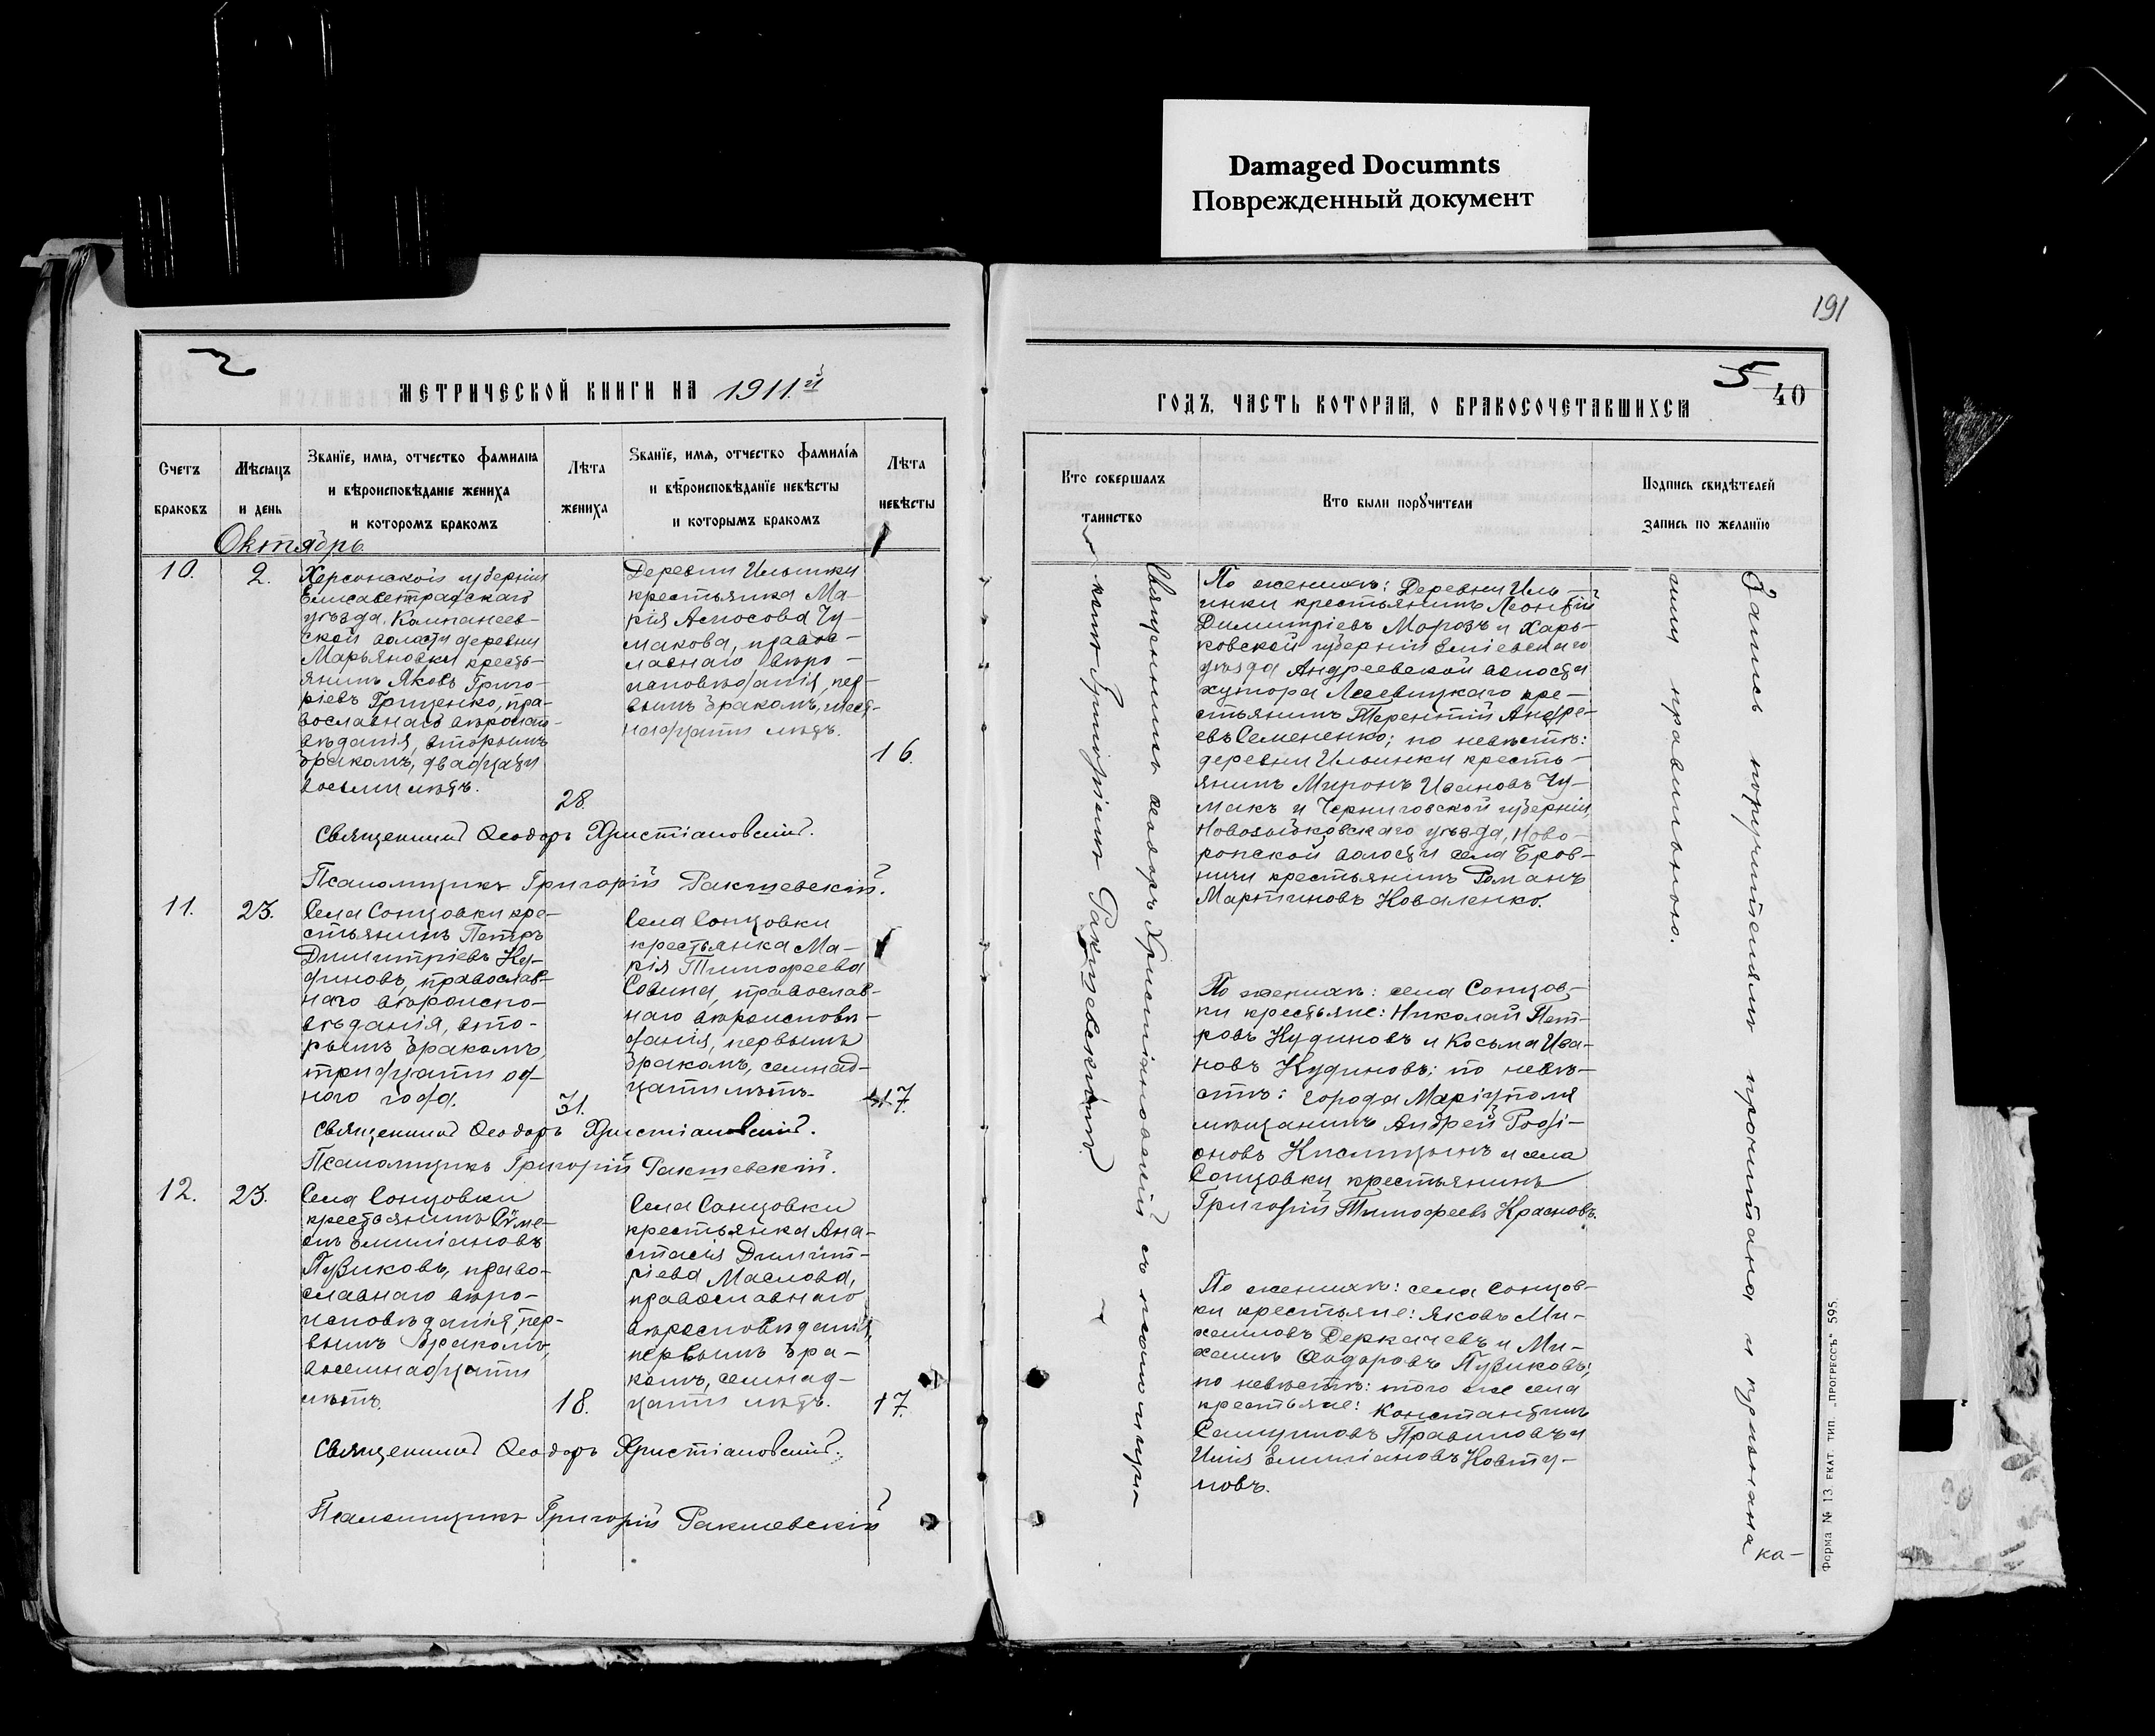 Damaged Documnts
Поврежденный документ
191
2
МЕТРИЧЕСКОЙ КНИГИ НА 1911.й
Счетъ
браковъ
Мѣсяцъ
и день
Званїе, имя, отчество фамилїа
и вѣроисповѣданїе жениха
и которомъ бракомъ
Лѣта
жениха
Званїе, имя, отчество фамилїя
и вѣроисповѣданїе невѣсты
и которымъ бракомъ
Лѣта
невѣсты
Октябрь
10.
2.
Херсонской губерніи
Елисаветградскаго
уѣзда, Компанеев-
ской волости деревни
Марьяновки кресть-
янинъ Яковъ Григо-
ріевъ Гриценко, пра-
вославнаго вѣроиспо-
вѣданія, вторымъ
бракомъ, двадцати
восьми лѣтъ.
28.
Деревни Ильинки
крестьянка Ма-
рія Амосова Чу-
макова, правос-
лавнаго вѣро-
исповѣданія, пер-
вымъ бракомъ, шест-
надцати лѣтъ.
16.
Священникъ Ѳеодоръ Христіановскій.
Псаломщикъ Григорій Ракшевскій.
11.
23.
Села Сонцовки кре-
стьянинъ Петръ
Димитріевъ Ку-
диновъ, православ-
наго вѣроиспо-
вѣданія, вто-
рымъ бракомъ,
тридцати од-
ного года.
31.
Села Сонцовки
крестьянка Ма-
рія Тимофеева
Совина, православ-
наго вѣроисповѣ-
данія, первымъ
бракомъ, семнад-
цати лѣтъ.
17.
Священникъ Ѳеодоръ Христіановскій.
Псаломщикъ Григорій Ракшевскій.
12.
23.
Села Сонцовки
крестьянинъ Сѵме-
онъ Емиліановъ
Пузиковъ, право-
славнаго вѣро-
исповѣданія, пер-
вымъ бракомъ,
восемнадцати
лѣтъ.
18.
Села Сонцовки
крестьянка Ана-
стасія Димит-
ріева Маслова,
православнаго
вѣроисповѣданія,
первымъ бра-
комъ, семнад-
цати лѣтъ.
17.
Священникъ Ѳеодоръ Христіановскій.
Псаломщикъ Григорій Ракшевскій
5
40
ГОДЪ, ЧАСТЬ ВТОРАЯ, О БРАКОСОЧЕТАВШИХСЯ
Кто совершалъ
таинство
Кто были порꙋчители
Подпись свидѣтелей
запись по желанїю
Священникъ Ѳеодоръ Христіановскій съ псаломщи-
комъ Григоріемъ Ракшевскимъ.
По женихѣ: Деревни Иль-
инки крестьянинъ Леонтій
Димитріевъ Морозъ и Харь-
ковской губерніи Зміевскаго
уѣзда Андреевской волости
хутора крe-
стьянинъ Терентій Андре-
евъ Семененко; по невѣстѣ:
деревни Ильинки кресть-
янинъ Миронъ Ивановъ Чу-
макъ и Черниговской губерніи,
Новозыбковскаго уѣзда, Ново-
ропской волости села Бров-
ничи крестьянинъ Романъ
Мартиновъ Коваленко.
По женихѣ: села Сонцов-
ки крестьяне: Николай Пет-
ровъ Кудиновъ и Косьма Ива-
новъ Кудиновъ; по невѣ-
стѣ: города Маріуполя
мѣщанинъ Андрей Роді-
оновъ Кислицынъ и села
Сонцовки крестьянинъ
Григорій Тимофеевъ Красновъ.
По женихѣ: села Сонцов-
ки крестьяне: Яковъ Ми-
хаиловъ Деркачевъ и Ми-
хаилъ Ѳеодоровъ Пузиковъ;
по невѣстѣ: того же села
крестьяне: Константинъ
Самуиловъ Правиловъ и
Илія Емиліановъ Ковту-
новъ.
Запись поручителямъ прочитана и признана ка-
ими правильною.
Форма № 13. ЕКАТ. ТИП. „ПРОГРЕССЪ" 595.